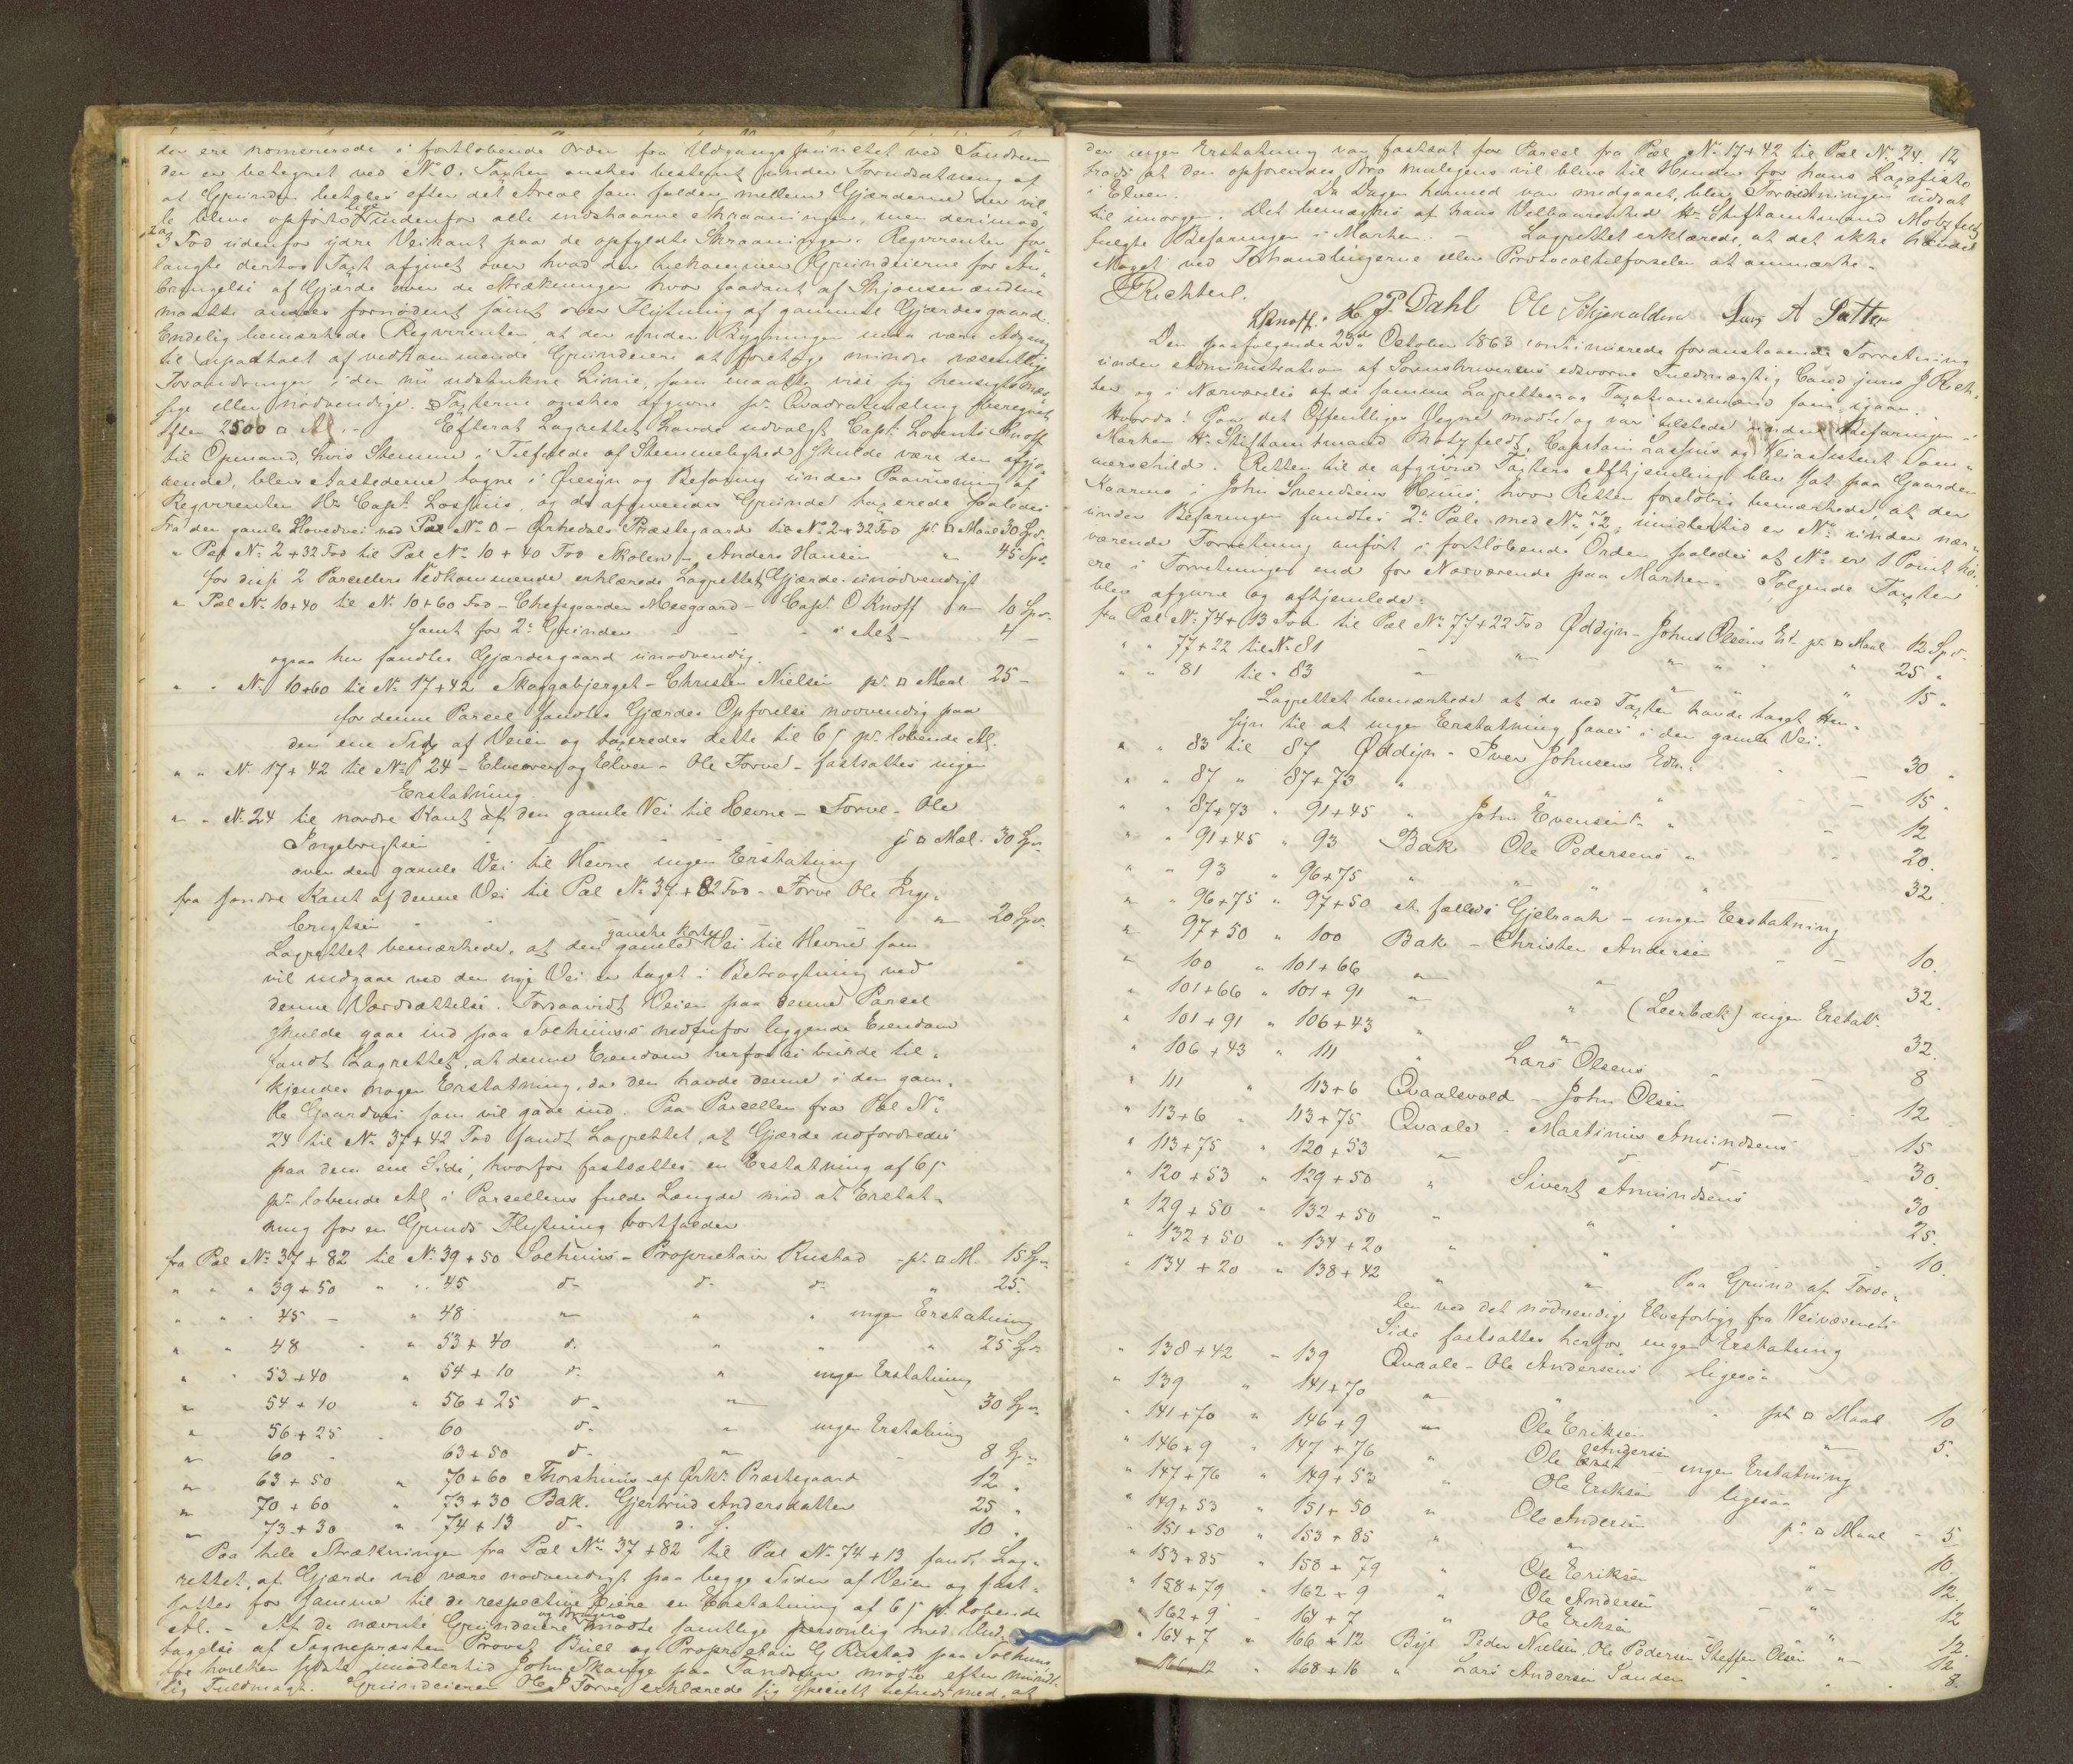 der ere nomererede i fortløbende Orden fra Udgangspunctet ved Tandrem
der er betegnet ved No 0. Taxten ønskes bestemt under Forudsætning af
at Grunden betales efter det Areal som falder mellem Gjærderne der vil
le blive opført lige udenfor alle indskaarne Skraaninger, men derimod
2 a 3 Fod udenfor ydre Veikant paa de opfyldte Skraaninger. Reqvirenten for-
langte derhos Taxt afgivet over hvad der bekommer Grundeierne for An-
bringelse af Gjærde over de Strækninger hvor saadant af Skjønsmændene
maatte ansees fornødent samt over Flytning af gammelt Gjærdesgaard.
Endelig bemærkede Reqvirenten, at der under Bygningen maa være Adgang
til upaatalt af vedkommende Grundeiere at foretage mindre væsentlige
Forandringer i den nu udstukne Linie, som maatte vise sig hensigtsmæs-
sige eller nødvendige. Taxterne ønskes afgivne pr Qvadratmaal beregnet
efter 2500 □ Al. - Efterat Lagrettet havde udvalgt Capt. Lorentz Knoff
til Opmand, hvis Stemme i Tilfælde af Stemmelighed skulde være den afgjø-
rende, blev Aastederne tagne i Øiesyn og Befaring under Paaviisning af
Reqvirenten Hr Capt. Lasfius, og de afgivende Grunde taxerede saaledes
Fra den gamle Hovedvei ved Pæl No 0 - Ørkedals Præstegaard til No 2+32 Fod pr □ Maal 30 Spd.
" Pæl No 2+32 Fod til Pæl No 10+40 Fod Skolen - Anders Hansen " 45 Spd.
for disse 2 Parcellers Vedkommende erklærede Lagrettet Gjærde unødvendigt
" Pæl No 10+40 til No 10+60 Fod - Chefsgaarden Moegaard - Capt. O Knoff " 10 Spd.
samt for 2de Grinder - - - i Alt - 4 -
ogsaa her fandtes Gjærdesgaard unødvendig.
" " No 10+60 til No 17+42 Skaugabjerget - Christen Nielsen pr □ Maal 25 -
for denne Parcel fandtes Gjærdes Opførelse nødvendig paa
den ene Side af Veien og taxeredes dette til 6 s pr løbende Al.
" " No 17+42 til No 24 - Elveøren og Elven - Ole Forve - fastsattes ingen
Erstatning.
" " No 24 til nordre Kant af den gamle Vei til Hevne - Forve - Ole
Ingebrigtsen - - - pr □ Mæl. 30 Spd.
over den gamle Vei til Hevne ingen Erstatning
fra søndre Kant af denne Vei til Pæl No 37+82 Fod - Forve Ole Inge-
brigtsen - - - " 20 Spd.
Lagrettet bemærkede, at den ganske korte gamle Vei til Hevne som
vil indgaae ved den nye Vei er taget i Betragtning ved
denne Værdsættelse. Forsaavidt Veien paa denne Parcel
skulde gaae ind paa Solhuus's nedenfor liggende Eiendom
fandt Lagrettet, at denne Eiendom herfor ei burde til-
kjendes nogen Erstatning, da den havde denne i den gam-
le Gaardvei som vil gaae ind. Paa Parcellen fra Pæl No
24 til No 37+42 Fod fandt Lagrettet, at Gjærde udfordredes
paa den ene Side, hvorfor fastsættes en Erstatning af 6 s
pr løbende Al i Parcellens fulde Længde mod at Erstat-
ning for en Grinds Flytning bortfalder
fra Pæl No 37+82 til No 39+50 Solhuus - Proprietair Rustad - pr □ M. 15 Spd.
" " " 39+50 " " 45 do do do " 25.
" " 45 - " 48 " " " ingen Erstatning
" " 48 - " 53+40 do " " " 25 Spd.
" " 53+40 " 54+10 do " ingen Erstatning
" 54+10 " 56+25 do " 30 Spd.
" 56+25 " 60 do " ingen Erstatning
" 60 - 63+50 do " - 8 Spd.
" 63+50 " 70+60 Thorshuus af Ørk. Præstegaard 12 "
" 70+60 " 73+30 Bak. Gjertrud Andersdatter 25 "
" 73+30 " 74+13 do do 10 "
Paa hele Strækningen fra Pæl No 37+82 til Pæl No 74+13 fandt Lag-
rettet, at Gjærde vil være nødvendigt paa begge Sider af Veien og fast-
sattes for samme til de respective Eiere en Erstatning af 6 s pr løbende
Al. - Af de nævnte Grundeiere og Brugere mødte samtlige personlig med Und-
tagelse af Sognepræsten Provst Bull og Proprietair G Rustad paa Solhuus
for hvilken sidste imidlertid John Skauge paa Tandrem mødte efter mundt-
lig Fuldmagt. Grundeieren Ole Forve erklærede sig specielt tilfreds med, at
der ingen Erstatning var fastsat for Parcel fra Pæl No 17+42 til Pæl No 24. 12
trods at den opførendes Bro muligens vil blive til Hinder for hans Laxefiske
i Elven. Da Dagen hermed var medgaaet, blev Forretningen udsat
til imorgen. Det bemærkes af hans Velbaarenhed Hr. Stiftamtmand Motzfeldt
fulgte Befaringen i Marken. - Lagrettet erklærede, at det ikke havde
Noget ved Forhandlingerne eller Protocoltilførselen at anmærke.
J Richter.
LKnoff. H. P. Dahl Ole Skjenalden Lars A Sætter
Den paafølgende 23de October 1863 continuerede foranstaaende Forretning
under Administration af Sorenskriverens edsvorne Fuldmægtig Cand. juris J Rich-
ter og i Nærværelse af de samme Lagrettes og Taxationsmænd som igaar.
Hvorda! Paa det Offentliges Vegne mødte og var tilstede under Befaringen i
Marken Hr. Stiftamtmand Motzfeldt, Capitain Lasfius og Veiassistent Tom-
merschild. Retten til de afgivne Taxters Afhjemling blev sat paa Gaarden
Kaarmo i John Svendsens Huus, hvor Retten foreløbig bemærkede at der
under Befaringen fandtes 2de Pæle med No 72; imidlertid er No under nær-
værende Forretning anført i fortløbende Orden saaledes at No er 1 Point hø-
ere i Forretningen end for Nærværende paa Marken. Følgende Taxter
blev afgivne og afhjemlede:
fra Pæl No 74+13 Fod til Pæl No 77+22 Fod Øddyn - John Olsens Ed. pr □ Maal 12 Spd.
" " 77+22 til No 81 - " " " " 25 "
" " 81 til " 83 - " " " 15 "
Lagrettet bemærkede at de ved Taxten havde taget Hen-
syn til at ingen Erstatning faaes i den gamle Vei.
" " 83 til 87 Øddyn - Iver Johnsens Edm: - - 30 "
" " 87 " 87+73 " " " - 15 "
" " 87+73 " 91+45 " John Evensens " - 12
" " 91+45 " 93 Bak Ole Pedersens " - 20.
" " 93 " 96+75 " " " " 32.
" " 96+75 " 97+50 et fælleds Gjelraak - ingen Erstatning
" 97+50 " 100 Bak - Christen Andersen - - 10.
" 100 " 101+66 " " 32.
" 101+66 " 101+91 " " (Leerbæk) ingen Erstatn.
" 101+91 " 106+43 " " 32.
" 106+43 " 111 " Lars Olsens - - 8
" 111 " 113+6 Qvaalsvold - John Olsen - 12
" 113+6 " 113+75 Qvaale - Martinus Amundsens - 15
" 113+75 " 120+53 " do do 30.
" 120+53 " 129+50 " Sivert Amundsens - 30
" 129+50 " 132+50 " " 25.
" 132+50 " 134+20 " " 10.
" 134+20 " 138+42 " " Paa Grund af Forde-
len ved det nødvendige Elveforbyg fra Veivæsenets
Side fastsattes herfor ingen Erstatning
" 138+42 " 139 Qvaale - Ole Andersens ligesaa
" 139 " 141+70 " " pr □ Maal 10
" 141+70 " 146+9 " Ole Eriksen " 5.
" 146+9 " 147+76 " Ole Andersen - ingen Erstatning
" 147+76 " 149+53 " Ole Eriksen ligesaa
" 149+53 " 151+50 " Ole Andersen pr □ Maal - 5
" 151+50 " 153+85 " " " 10.
" 153+85 " 158+79 " Ole Eriksen " 12.
" 158+79 " 162+9 " Ole Andersen " 12
" 162+9 " 164+7 " Ole Eriksen " 12.
" 164+7 " 166+12 Bye Peder Nielsen, Ole Pedersen Steffen Olsen " 12.
" 166+12 " 168+16 " Lars Andersen Sanden " 8.